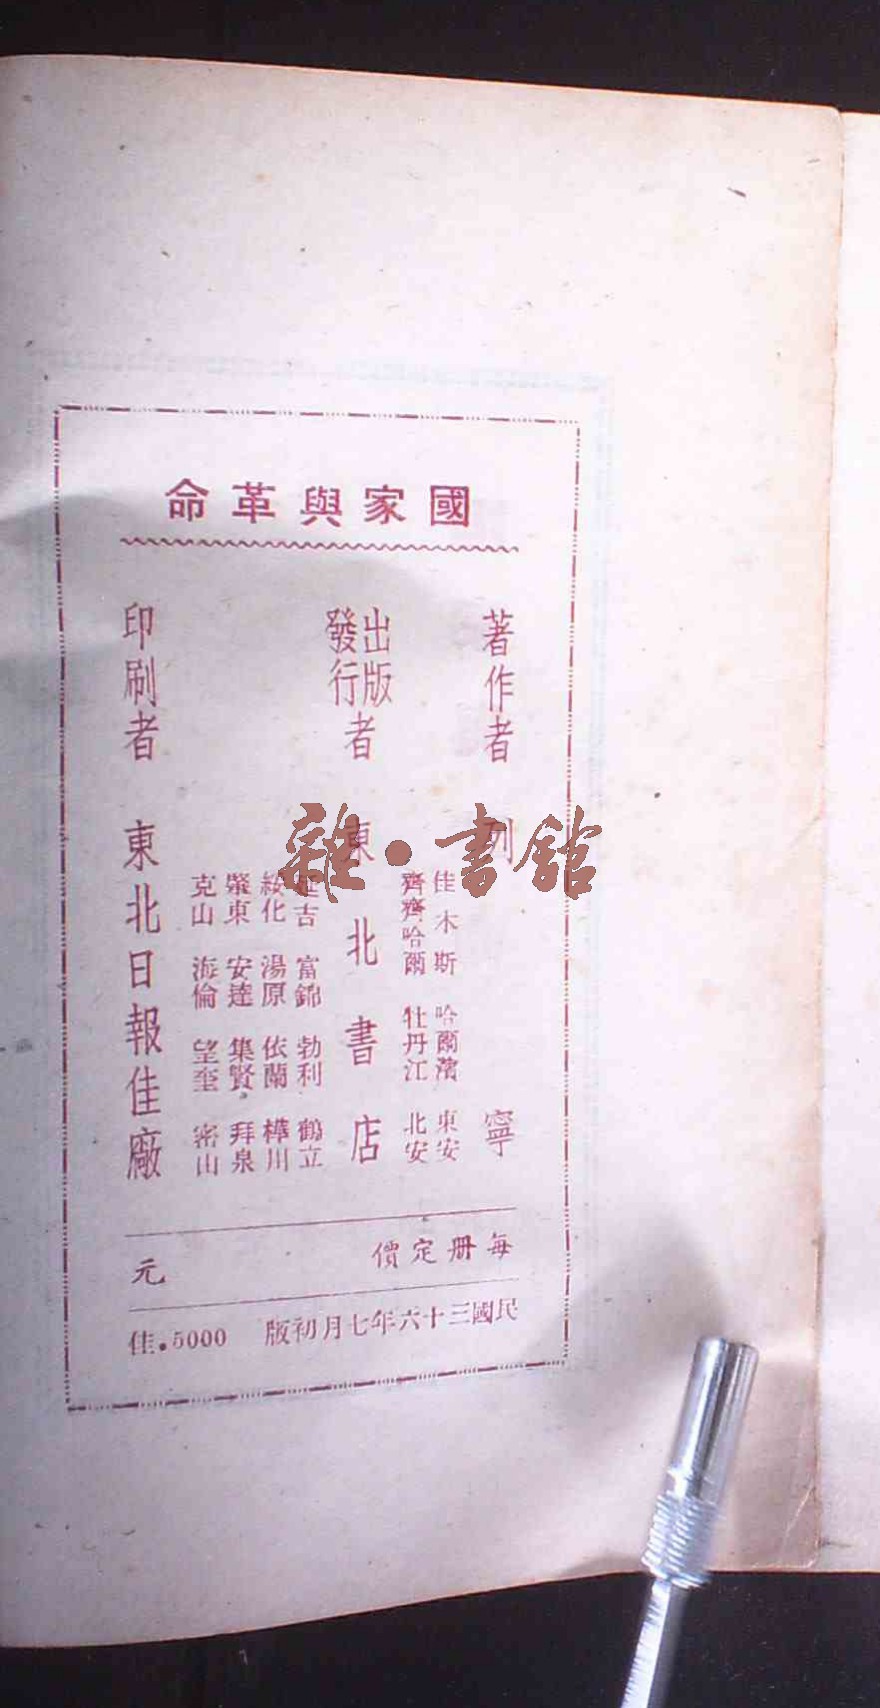 國家與革命
著作者 列寧
出版發行者 東北書店
佳木斯 哈爾濱 東安
齊齊哈爾 牡丹江 北安
延吉 富錦 勃利 鶴立
綏化 湯原 依蘭 樺川
肇東 安達 集賢 拜泉
克山 海倫 望奎 密山
印刷者 東北日報佳廠
每册定價 元
民國三十六年七月初版 5000.佳
雜·書館